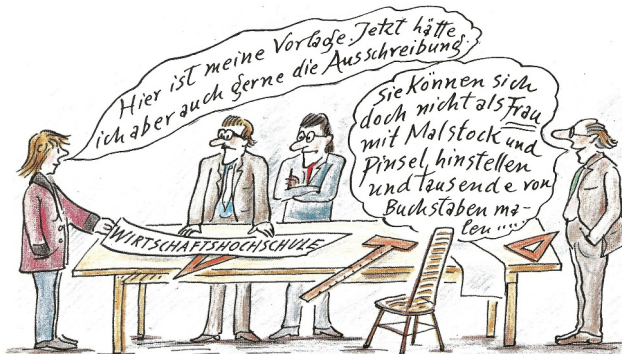 Hier ist meine Vorlage. Jetzt hätte
ich aber auch gerne die Ausschreibung.
sie können sich
doch nicht als Frau
mit Malstock und
Pinsel hinstellen
und tausende von
Buchstaben ma-
len.....
WIRTSCHAFTSHOCHSCHULE